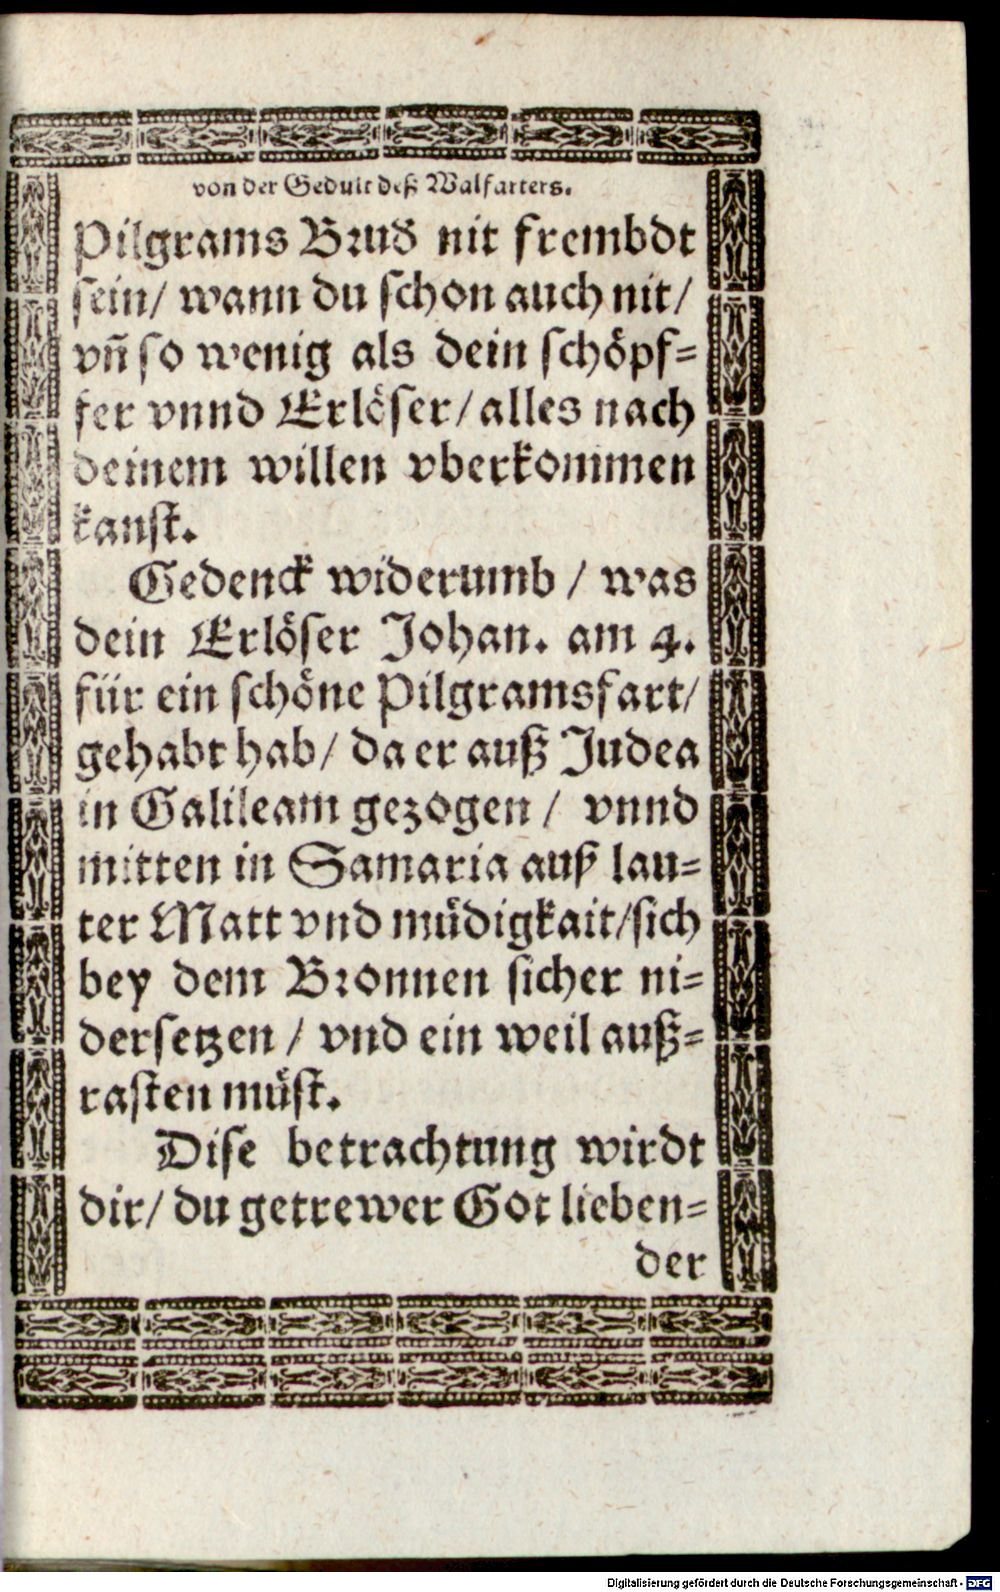 von der Gedult deß Walfarters.
Pilgrams Brud̾ nit frembdt
sein/ wann du schon auch nit/
vn̄ so wenig als dein schöpf-
fer vnnd Erlöser/ alles nach
deinem willen vberkommen
kanst.
Gedenck widerumb / was
dein Erlöser Johan. am 4.
für ein schöne Pilgramsfart/
gehabt hab/ da er auß Judea
in Galileam gezogen / vnnd
mitten in Samaria auß lau-
ter Matt vnd müdigkait/ sich
bey dem Bronnen sicher ni-
dersetzen / vnd ein weil auß-
rasten müst.
Dise betrachtung wirdt
dir/ du getrewer Got lieben-
der
Digitalisierung gefördert durch die Deutsche Forschungsgemeinschaft - DFG